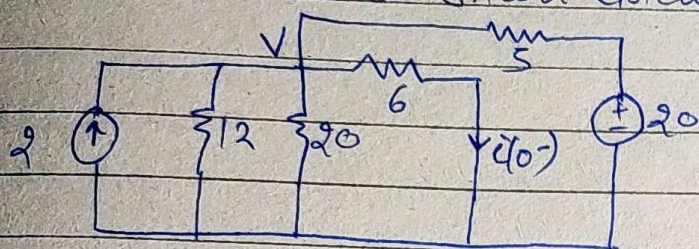 V
5
6
2
12
20
i(0-)
+
-
20